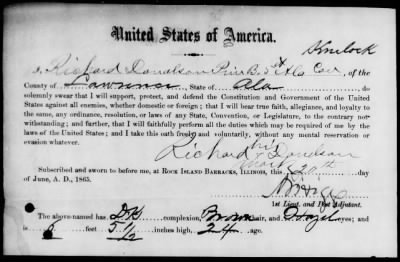 United States of America.
Kinlock
I, Richard Donalson Priv B. 5th Ala Cav, of the
County of Lawrence State of Ala do
solemnly swear that I will support, protect, and defend the Constitution and Government of the United
States against all enemies, whether domestic or foreign; that I will bear true faith, allegiance, and loyalty to
the same, any ordinance, resolution, or laws of any State, Convention, or Legislature, to the contrary not-
withstanding; and further, that I will faithfully perform all the duties which may be required of me by
the laws of the United States; and I take this oath freely and voluntarily, without any mental reservation or
evasion whatever.
his
Richard x Donalson
mark
Subscribed and sworn to before me, at ROCK ISLAND BARRACKS, ILLINOIS, this 20th day
of June, A. D., 1865.
1st Lieut, and Post Adjutant.
The above named has DK complexion, Brown hair, and Hazel eyes; and
is 5 feet 5 1/2 inches high, 24 age.